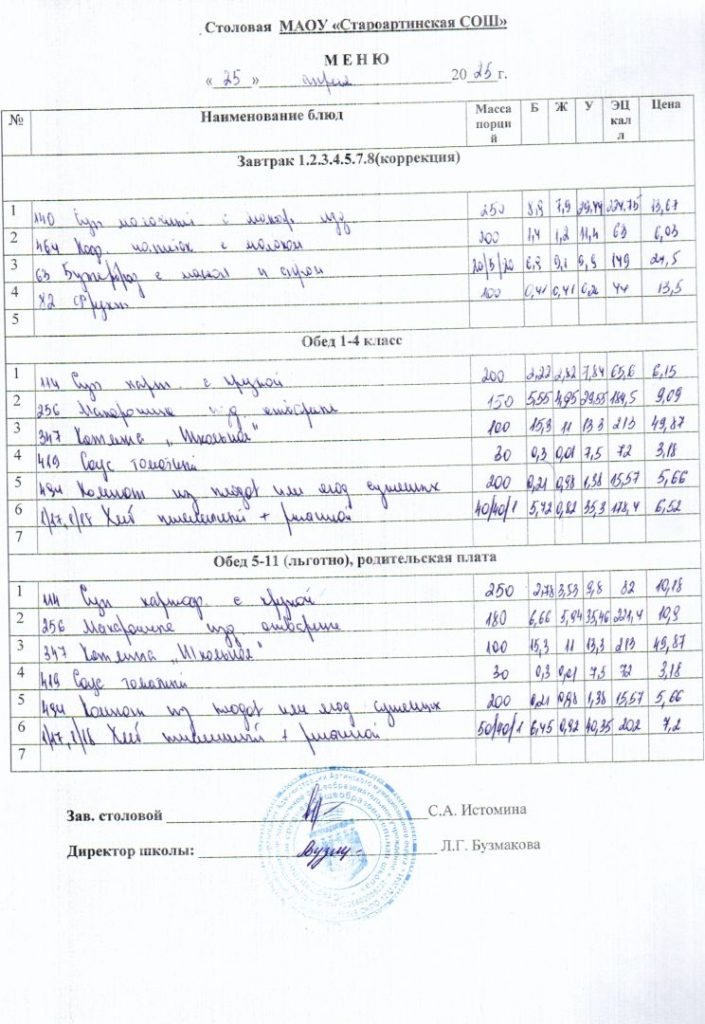 Столовая МАОУ «Староартинская СОШ»
МЕНЮ
«25» апреля 2025 г.
№ Наименование блюд Масса порций Б Ж У ЭЦ кал л Цена
Завтрак 1.2.3.4.5.7.8(коррекция)
1 140 Суп молочный с макар. изд 250 8,9 7,9 29,44 224,75 13,67
2 464 Коф. напиток с молоком 200 1,4 1,2 11,4 63 6,03
3 63 Бутерброд с маслом и сыром 20/5/20 9,1 149 24,5
4 82 Фрукт 100 0,41 0,41 44 13,5
5
Обед 1-4 класс
1 114 Суп карт. с крупой 200 2,22 2,82 7,84 65,6 6,15
2 256 Макароные изд отварные 150 5,55 4,95 29,55 184,5 9,09
3 347 Котлета „Школьная" 100 15,3 11 13,3 213 49,87
4 419 Соус томатный 30 0,3 0,01 7,5 72 3,18
5 494 Компот из плодов или ягод сушеных 200 0,21 0,98 1,38 15,57 5,66
6 1/17,1/18 Хлеб пшеничный + ржаной 40/40/1 5,72 0,82 35,3 178,4 6,52
7
Обед 5-11 (льготно), родительская плата
1 114 Суп картоф с крупой 250 2,78 3,53 9,8 82 10,18
2 256 Макароные изд отварные 180 6,66 5,94 35,46 221,4 10,9
3 347 Котлета „Школьная" 100 15,3 11 13,3 213 49,87
4 419 Соус томатный 30 0,3 0,01 7,5 72 3,18
5 494 Компот из плодов или ягод сушеных 200 0,21 0,98 1,38 15,57 5,66
6 1/17,1/18 Хлеб пшеничный + ржаной 50/40/1 6,45 0,92 40,35 202 7,2
7
Зав. столовой С.А. Истомина
Директор школы: Л.Г. Бузмакова